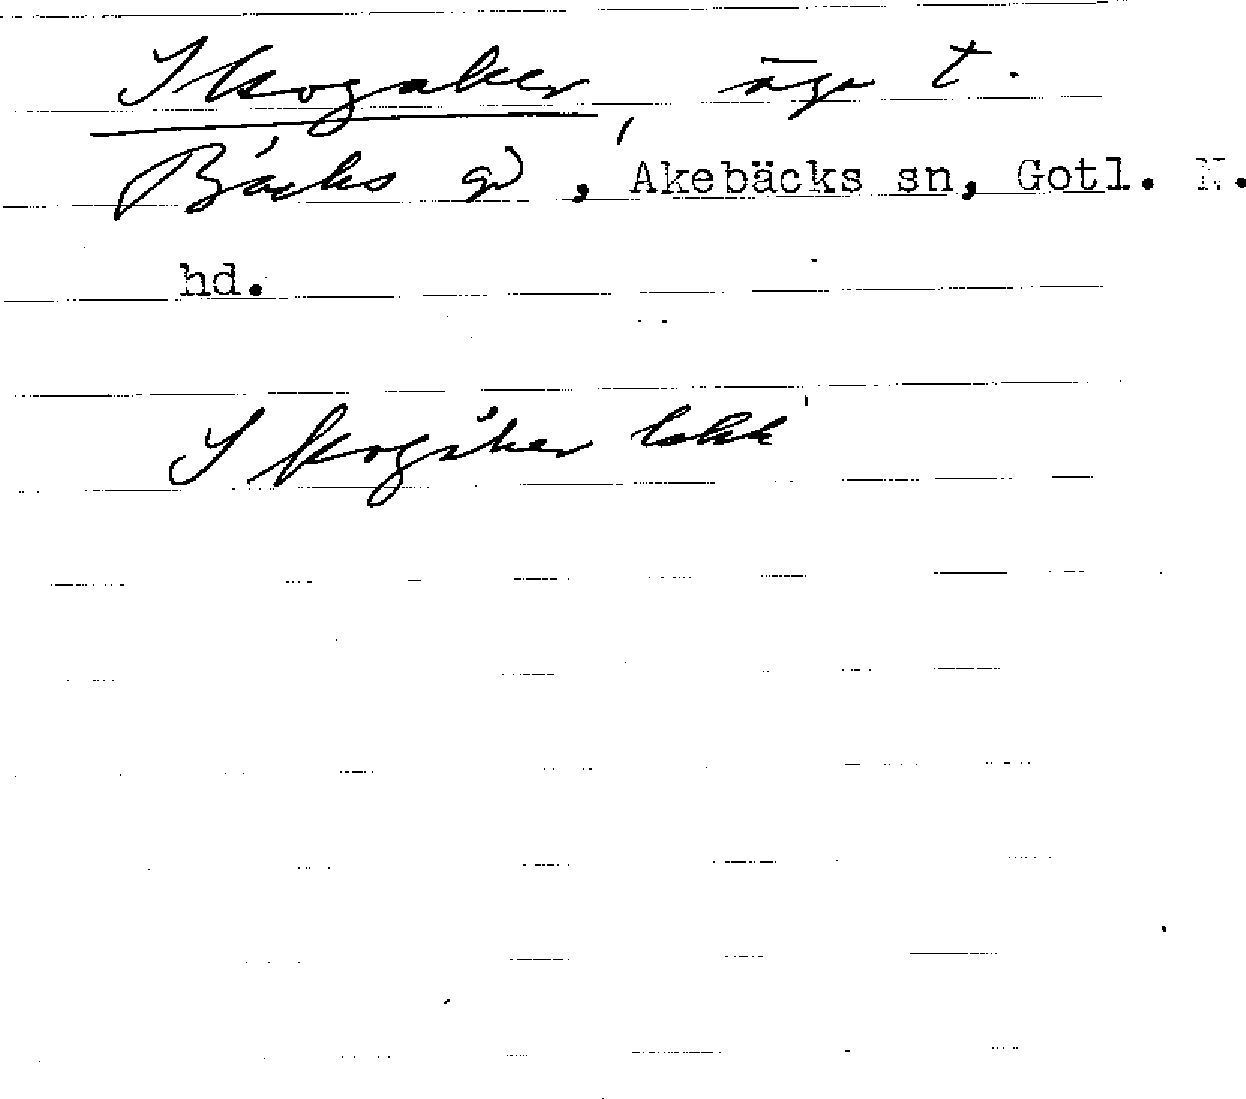 Skogaker, äga t.
Bäcks gd, Akebäcks sn, Gotl. N.
hd.
Skogåker